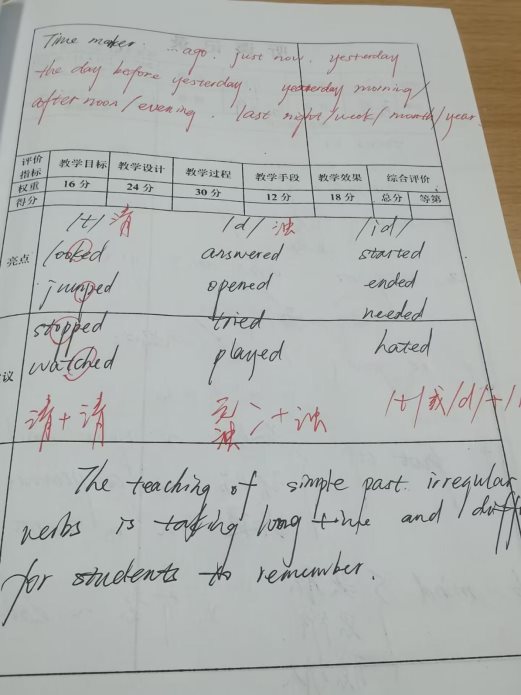 Time maker ago. just now. yesterday
the day before yesterday. yesterday morning/
afternoon/evening. last night/week/month/year
评价指标 教学目标 教学设计 教学过程 教学手段 教学效果 综合评价
权重 16 分 24 分 30 分 12 分 18 分 总分 等第
得分
/t/ 清 /d/ 浊 /id/
亮点 looked answered started
jumped opened ended
stopped tried needed
议 watched played hated
清+清 元 浊 >+浊 /t/或/d/+/
The teaching of simple past irregular
verbs is taking long time and diff
for students to remember.